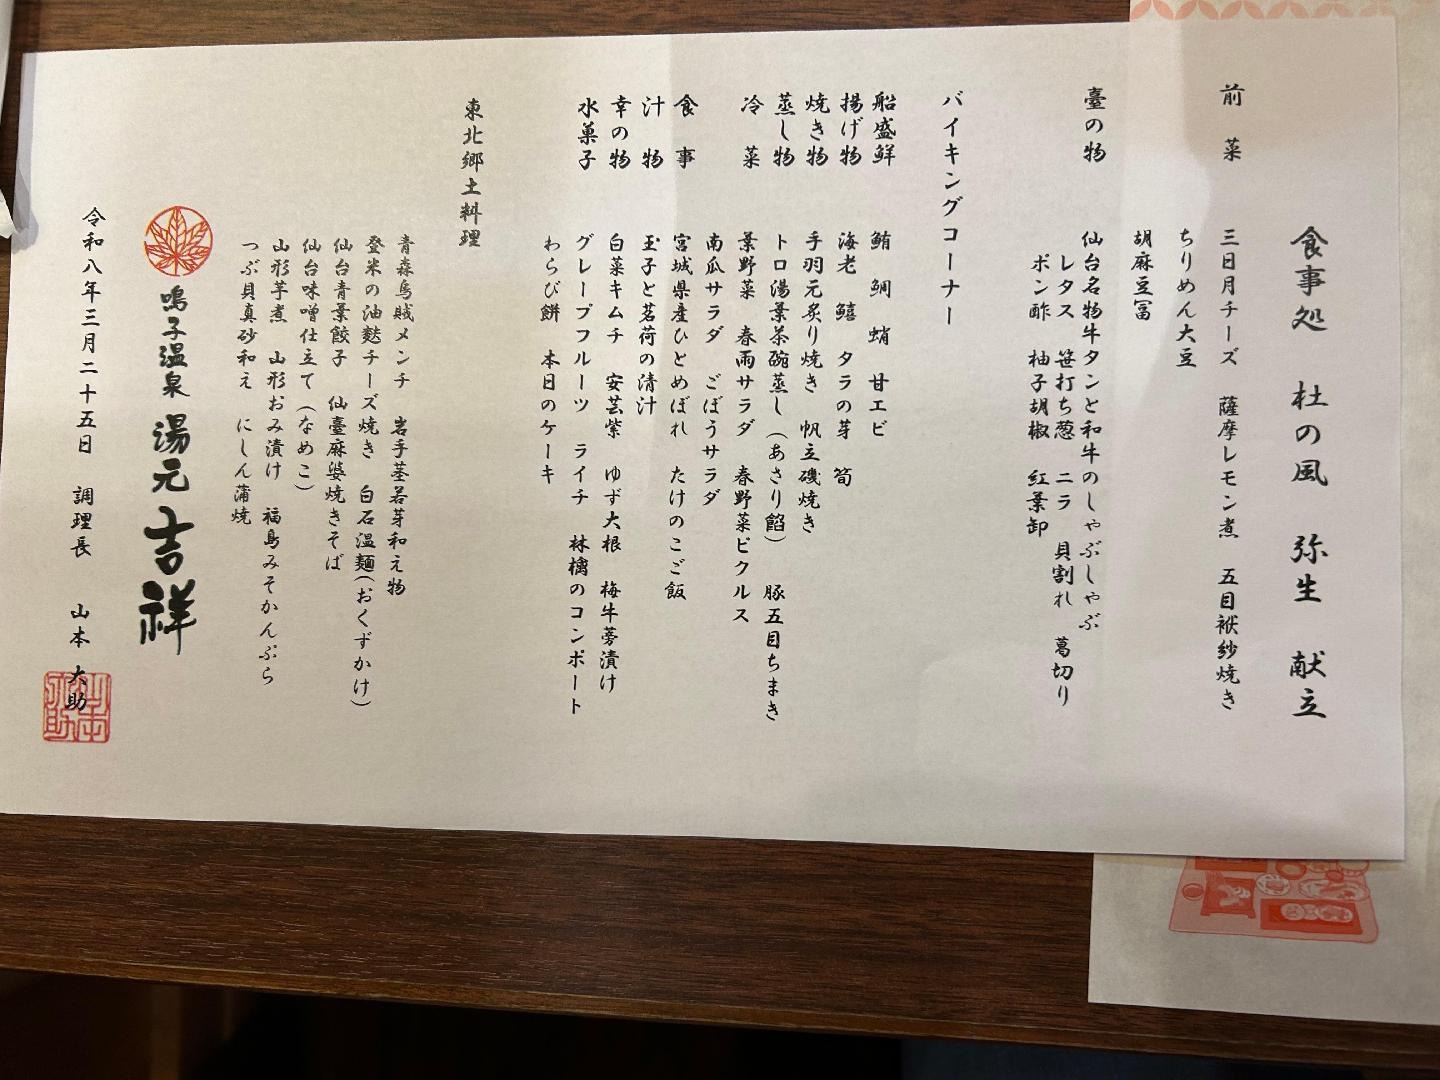 食事処　杜の風　弥生　献立
前　菜　三日月チーズ　薩摩レモン煮　五目袱紗焼き
ちりめん大豆
胡麻豆冨
臺の物　仙台名物牛タンと和牛のしゃぶしゃぶ
レタス　笹打ち葱　ニラ　貝割れ　葛切り
ポン酢　柚子胡椒　紅葉卸
バイキングコーナー
船盛鮮　鮪　鯛　蛸　甘エビ
揚げ物　海老　鱚　タラの芽　筍
焼き物　手羽元炙り焼き　帆立磯焼き
蒸し物　トロ湯葉茶碗蒸し（あさり餡）　豚五目ちまき
冷　菜　葉野菜　春雨サラダ　春野菜ピクルス
南瓜サラダ　ごぼうサラダ
食　事　宮城県産ひとめぼれ　たけのこご飯
汁　物　玉子と茗荷の清汁
幸の物　白菜キムチ　安芸紫　ゆず大根　梅牛蒡漬け
水菓子　グレープフルーツ　ライチ　林檎のコンポート
わらび餅　本日のケーキ
東北郷土料理
青森烏賊メンチ　岩手茎若芽和え物
登米の油麩チーズ焼き　白石温麺（おくずかけ）
仙台青葉餃子　仙臺麻婆焼きそば
仙台味噌仕立て（なめこ）
山形芋煮　山形おみ漬け　福島みそかんぷら
つぶ貝真砂和え　にしん蒲焼
鳴子温泉　湯元　吉祥
令和八年三月二十五日　調理長　山本　大助
山本大助